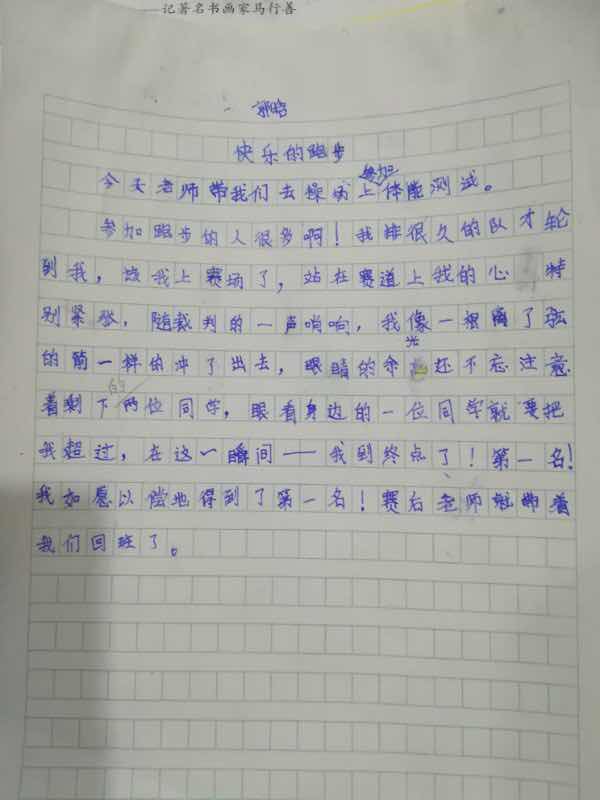 ——记著名书画家马行善
郭晗
快乐的跑步
今天老师带我们去操场上参加体能测试。
参加跑步的人很多啊！我排很久的队才轮
到我，该我上赛场了，站在赛道上我的心特
别紧张，随裁判的一声哨响，我像一根离了弦
的箭一样的冲了出去，眼睛的余光还不忘注意
着剩下的两位同学，眼看身边的一位同学就要把
我超过，在这一瞬间——我到终点了！第一名！
我如愿以偿地得到了第一名！赛后老师就带着
我们回班了。